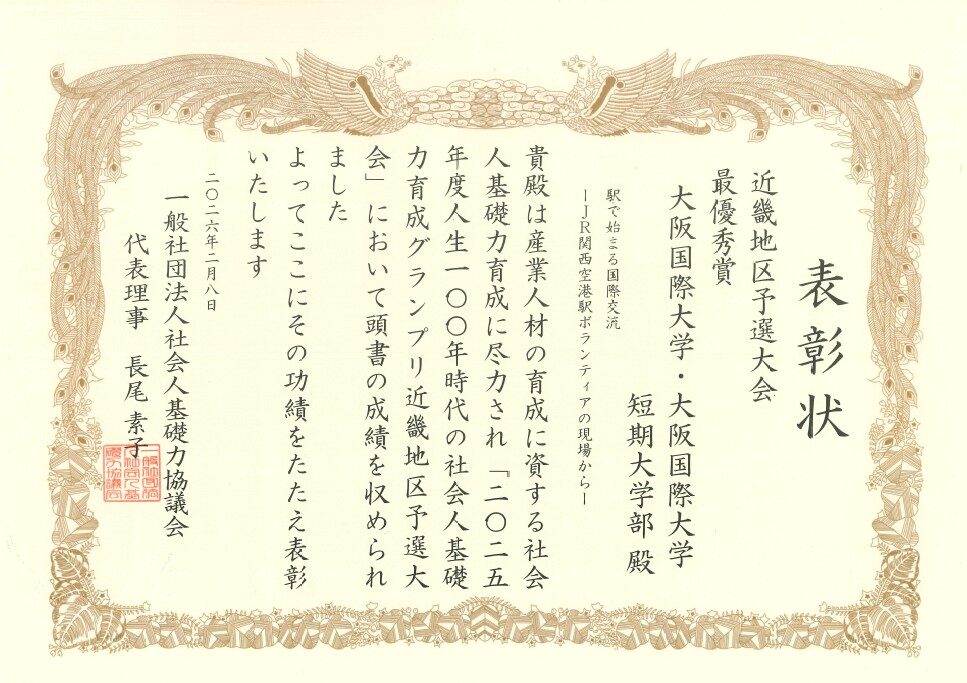 表彰状
近畿地区予選大会
最優秀賞
大阪国際大学・大阪国際大学
短期大学部 殿
駅で始まる国際交流
―JR関西空港駅ボランティアの現場から―
貴殿は産業人材の育成に資する社会
人基礎力育成に尽力され『二〇二五
年度人生一〇〇年時代の社会人基礎
力育成グランプリ近畿地区予選大
会」において頭書の成績を収められ
ました
よってここにその功績をたたえ表彰
いたします
二〇二六年二月八日
一般社団法人社会人基礎力協議会
代表理事 長尾 素子